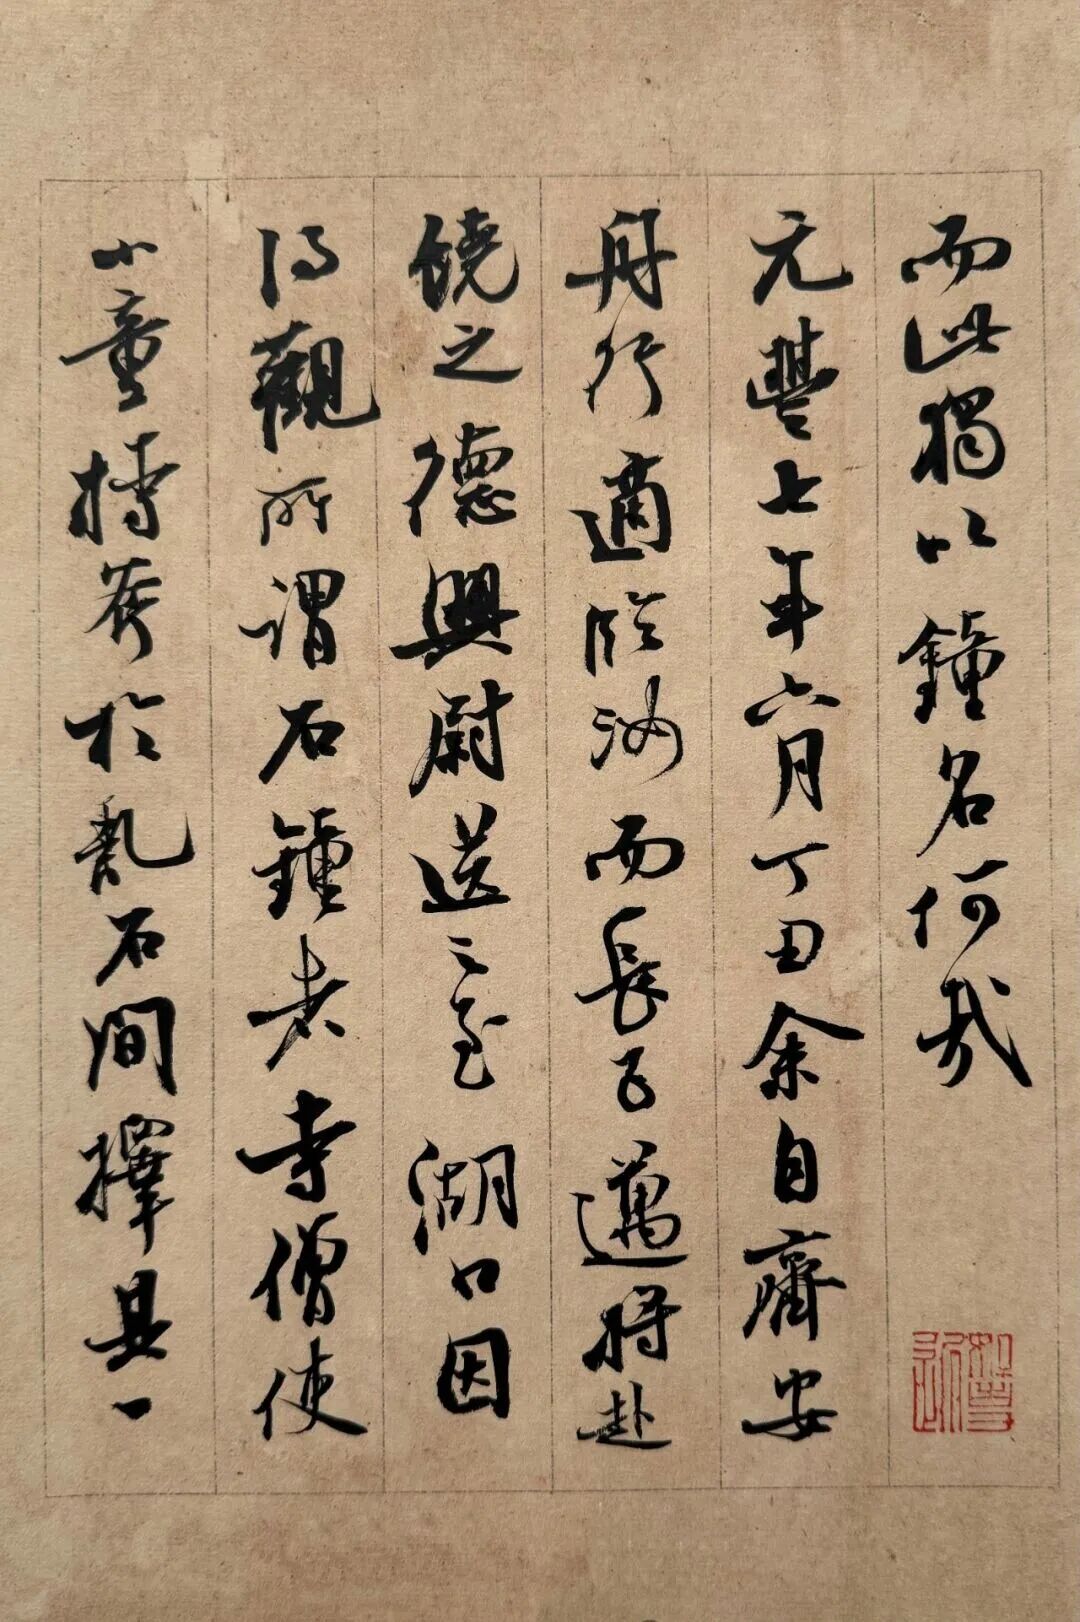 而此獨以鐘名何哉
元豐七年六月丁丑余自齊安
舟行適臨汝而長子邁將赴
饒之德興尉送之至湖口因
得觀所謂石鐘者寺僧使
小童持斧於亂石間擇其一